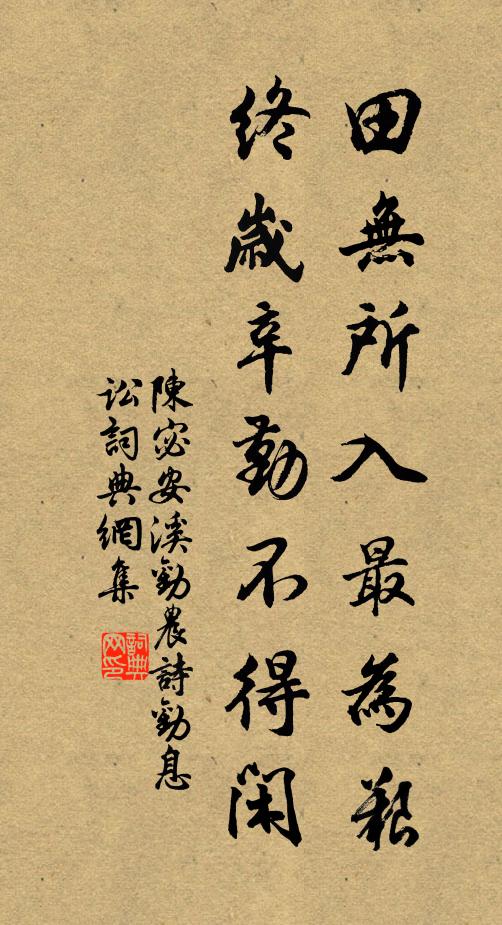 田無所入最為艱
終歲辛勤不得閑
陳宓安溪勸農詩勸息
訟詞典網集
詞典
网印